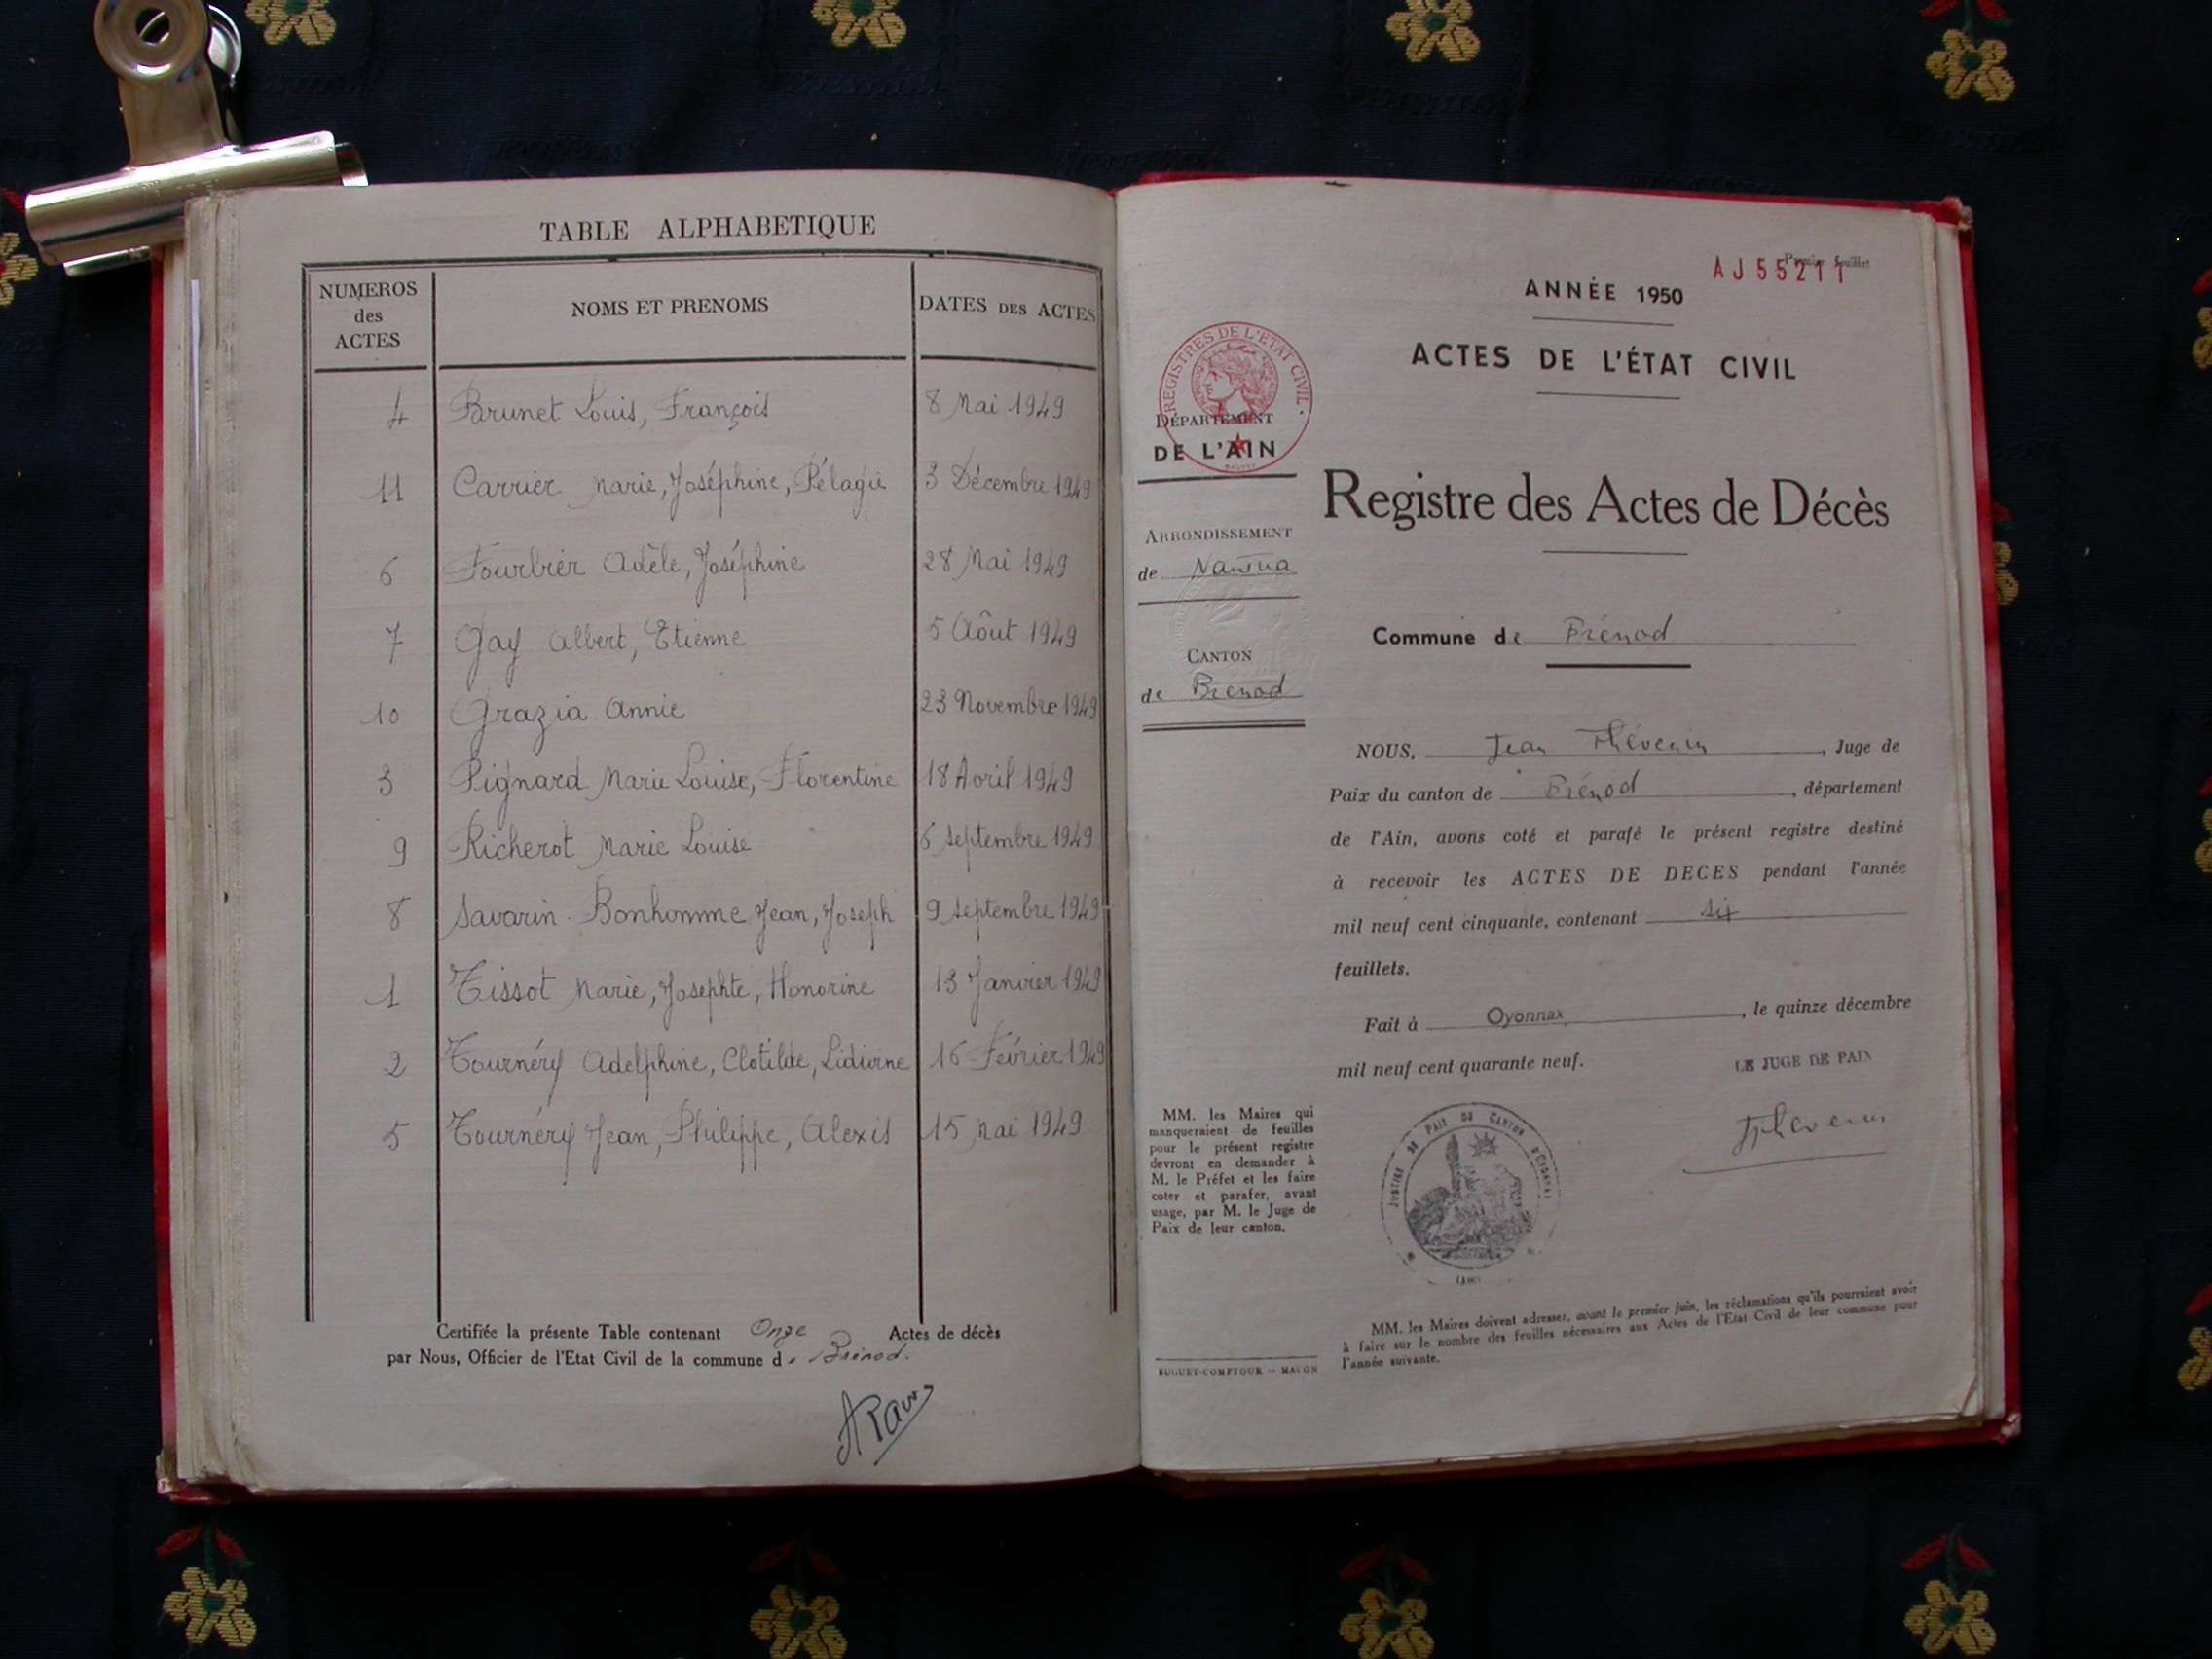 TABLE ALPHABETIQUE
NUMEROS des ACTES NOMS ET PRENOMS DATES DES ACTES
4 Brunet Louis, François 8 Mai 1949
11 Carrier Marie, Joséphine, Pélagie 3 Décembre 1949
6 Fourbier Adèle, Joséphine 28 Mai 1949
7 Gay Albert, Etienne 5 Aôut 1949
10 Grazia Annie 23 Novembre 1949
3 Pignard Marie Louise, Florentine 18 Avril 1949
9 Richerot Marie Louise 6 Septembre 1949
8 Savarin-Bonhomme Jean, Joseph 9 Septembre 1949
1 Tissot Marie, Josephte, Honorine 13 Janvier 1949
2 Tournéry Adelphine, Clotilde, Lidivine 16 Février 1949
5 Tournéry Jean, Philippe, Alexis 15 Mai 1949
Certifiée la présente Table contenant Onze Actes de décès
par Nous, Officier de l'Etat Civil de la commune de Brénod.
Premier feuillet
AJ55211
ANNÉE 1950
ACTES DE L'ÉTAT CIVIL
REGISTRES DE L'ÉTAT CIVIL
DÉPARTEMENT
DE L'AIN
Registre des Actes de Décès
ARRONDISSEMENT
de Nantua
Commune de Brénod
CANTON
de Brénod
NOUS, Jean Thévenin, Juge de
Paix du canton de Brénod, département
de l'Ain, avons coté et parafé le présent registre destiné
à recevoir les ACTES DE DECES pendant l'année
mil neuf cent cinquante, contenant six
feuillets.
Fait à Oyonnax, le quinze décembre
mil neuf cent quarante neuf.
LE JUGE DE PAIX
Thévenin
MM. les Maires qui
manqueraient de feuilles
pour le présent registre
devront en demander à
M. le Préfet et les faire
coter et parafer, avant
usage, par M. le Juge de
Paix de leur canton.
JUSTICE DE PAIX DU CANTON D'OYONNAX
(AIN)
MM. les Maires doivent adresser, avant le premier juin, les réclamations qu'ils pourraient avoir
à faire sur le nombre des feuilles nécessaires aux Actes de l'Etat Civil de leur commune pour
l'année suivante.
BUGUET-COMPTOUR -- MACON